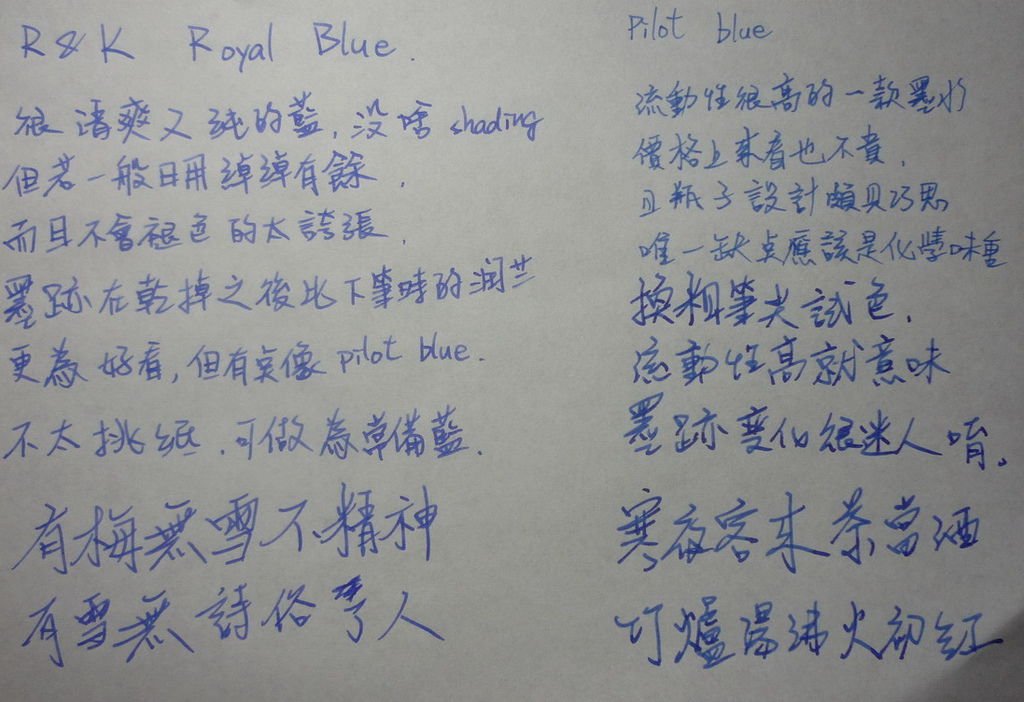 R & K Royal Blue.
很清爽又純的藍, 没啥 shading
但若一般日用綽綽有餘.
而且不會褪色的太誇張.
墨跡在乾掉之後比下筆時的润兰
更為好看, 但有点像 pilot blue.
不太挑纸. 可做為常備藍.
有梅無雪不精神
有雪無詩俗了人
Pilot blue
流動性很高的一款墨水
價格上來看也不貴.
且瓶子設計頗具巧思
唯一缺点應該是化學味重
換粗筆尖試色.
流動性高就意味
墨跡变化很迷人唷。
寒夜客来茶當酒
竹爐湯沸火初紅